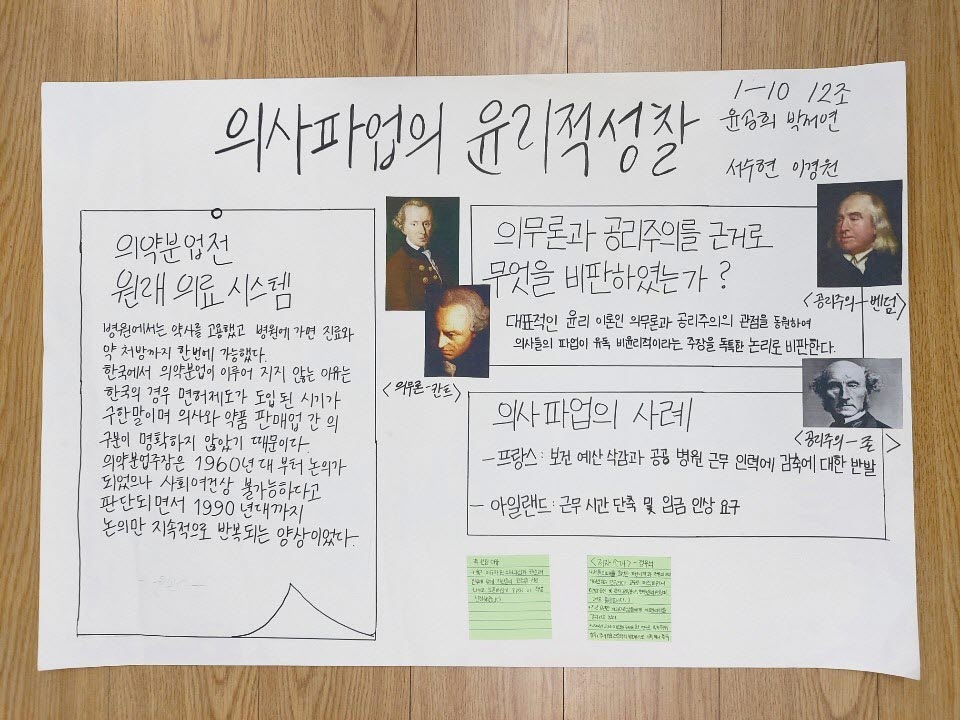 의사파업의 윤리적성찰
1-10 12조
박저연
서수현 이경원
의약분업전
원래 의료 시스템
병원에서는 약사를 고용했고 병원에 가면 진료와
약 처방까지 한번에 가능했다.
한국에서 의약분업이 이루어 지지 않는 이유는
한국의 경우 면허제도가 도입된 시기가
구한말이며 의사와 약품 판매업 간의
구분이 명확하지 않았기 때문이다.
의약분업주장은 1960년대 부터 논의가
되었으나 사회여건상 불가능하다고
판단되면서 1990년대까지
논의만 지속적으로 반복되는 양상이었다.
<의무론-칸트>
의무론과 공리주의를 근거로
무엇을 비판하였는가?
대표적인 윤리 이론인 의무론과 공리주의의 관점을 동원하여
의사들의 파업이 유독 비윤리적이라는 주장을 독특한 논리로 비판한다.
<공리주의-벤덤>
의사파업의 사례
-프랑스: 보건 예산 삭감과 공공 병원 근무 인력에 감축에 대한 반발
- 아일랜드: 근무 시간 단축 및 임금 인상 요구
<공리주의-존>